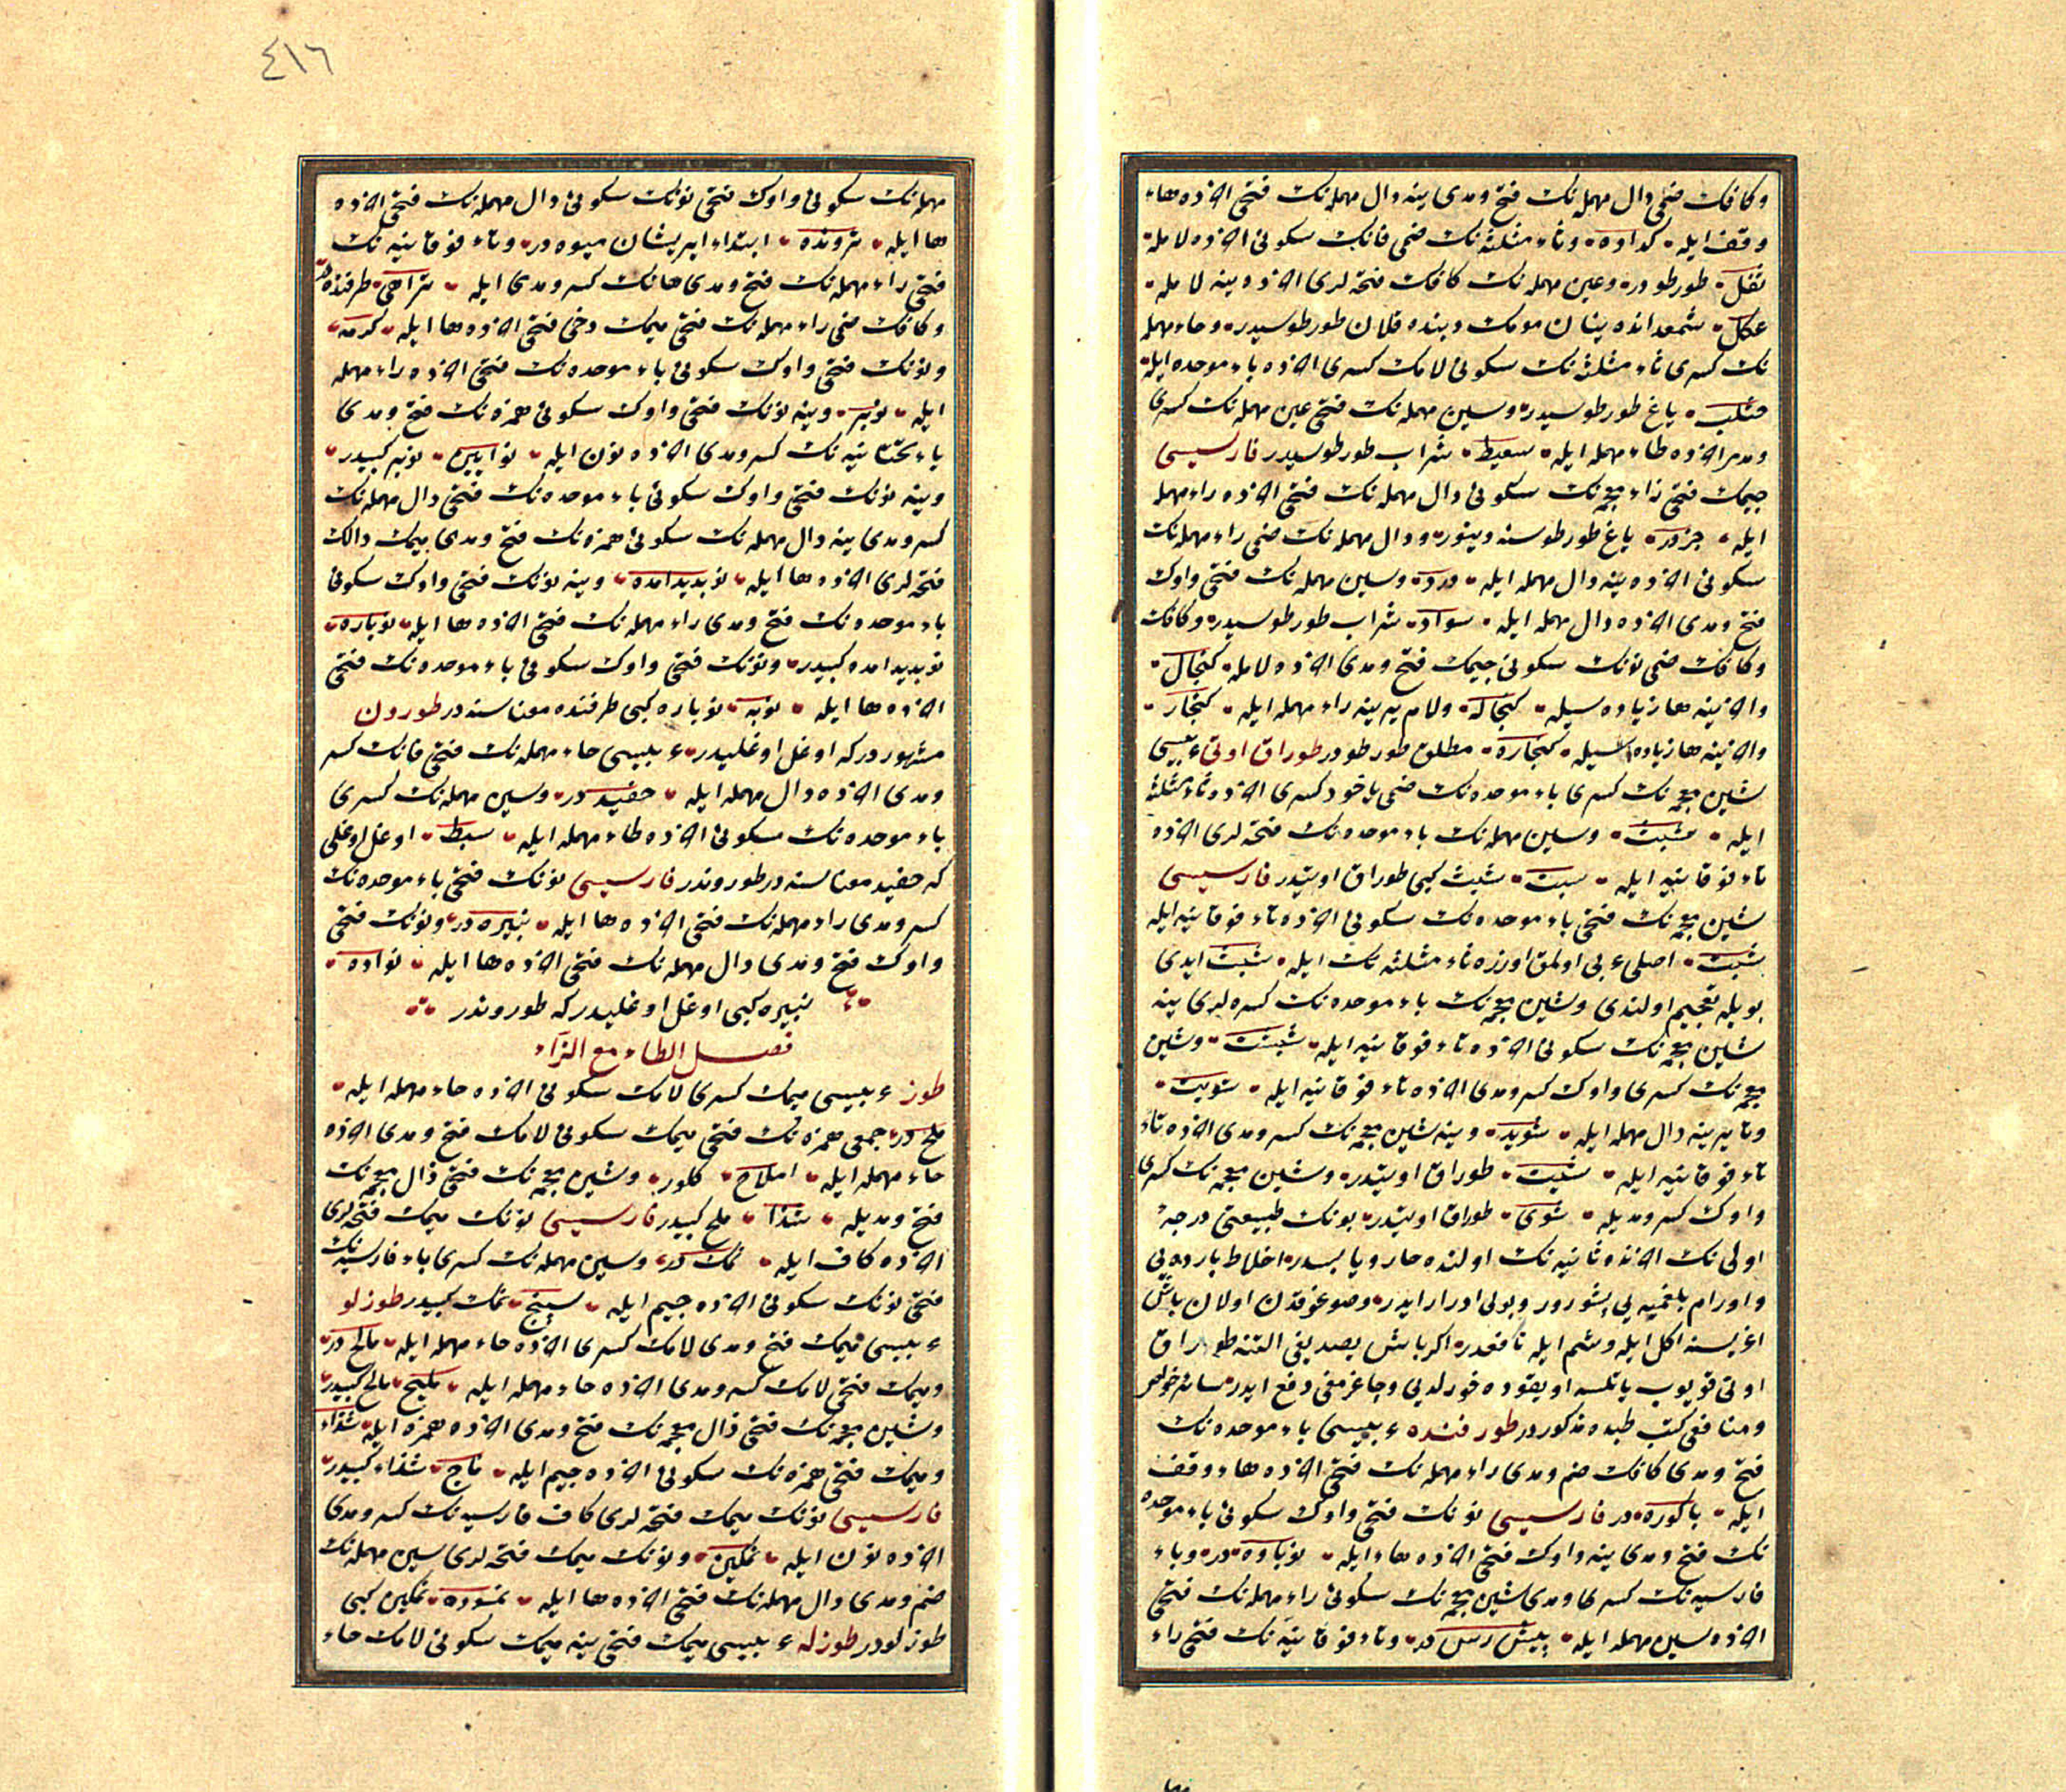 وكافك ضمى دال مهمله نك فتح ومدى ينه دال مهمله نك فتحى الاذه هاء
وقف ايله كداده وثاء مثلثه نك ضمى فانك سكونى الاذه لامله
ثفل طورطودر وعين مهمله نك كافك فتحه لرى الاذه ينه لامله
عكل شمعدانده ينان مومك ديبنده قلان طورطوسيدر وحاء مهمله
نك كسرى ثاء مثلثه نك سكونى لامك كسرى الاذه باء موحده ايله
حثلب ياغ طورطوسيدر وسين مهمله نك فتحى عين مهمله نك كسرى
ومدى الاذه طاء مهمله ايله سعيط شراب طورطوسيدر فارسيسى
جيمك فتحى زاء معجمه نك سكونى دال مهمله نك فتحى الاذه راء مهمله
ايله جزدر ياغ طورطوسنه دينور ودال مهمله نك ضمى راء مهمله نك
سكونى الاذه ينه دال مهمله ايله درد وسين مهمله نك فتحى واوك
فتح ومدى الاذه دال مهمله ايله سواد شراب طورطوسيدر وكافك
وكافك ضمى نونك سكونى جيمك فتح ومدى الاذه لامله كنجال
والاذينه ها زياده سيله كنجاله ولام يرينه راء مهمله ايله كنجار
والاذينه ها زياده سيله كنجاره مطلق طورطودر طوراق اوتى عربيسى
شين معجمه نك كسرى باء موحده نك ضمى ياخود كسرى الاذه ثاء مثلثه
ايله شبث وسين مهمله نك باء موحده نك فتحه لرى الاذه
تاء فوقانيه ايله سبت شبث كبى طوراق اوتيدر فارسيسى
شين معجمه نك فتحى باء موحده نك سكونى الاذه تاء فوقانيه ايله
شبت اصلى عربى اولمق اوزره ثاء مثلثه نك ايله شبث ايدى
بويله تعجيم اولندى وشين معجمه نك باء موحده نك كسره لرى ينه
شين معجمه نك سكونى الاذه تاء فوقانيه ايله شبشت وشين
معجمه نك كسرى واوك كسر ومدى الاذه تاء فوقانيه ايله شويت
وتا يرينه دال مهمله ايله شويد وينه شين معجمه نك كسر ومدى الاذه تاء
تاء فوقانيه ايله شيت طوراق اوتيدر وشين معجمه نك كسرى
واوك كسر ومديله شوى طوراق اوتيدر بونك طبيعتى درجهٔ
اولى نك الاذنده ثانيه نك اولنده حار ويابسدر اخلاط بارده يى
واورام بلغميه يى پشورور وبولى ادرار ايدر وصوغوقدن اولان باش
اغريسنه اكل ايله وشم ايله نافعدر اكر باش يصديغى التنه طوراق
اوتى قويوب ياتلسه اويقوده خورلديى وچاغرمغى دفع ايدر سائر خواص
ومنافعى كتب طبده مذكوردر طورفنده عربيسى باء موحده نك
فتح ومدى كافك ضم ومدى راء مهمله نك فتحى الاذه هاء وقف
ايله باكوره در فارسيسى نونك فتحى واوك سكونى باء موحده
نك فتح ومدى ينه واوك فتحى الاذه هاء ايله نوباوه در وباء
فارسيه نك كسرى ومدى شين معجمه نك سكونى راء مهمله نك فتحى
الاذه سين مهمله ايله پيش رس در وتاء فوقانيه نك فتحى راء
٤١٦
مهمله نك سكونى واوك فتحى نونك سكونى دال مهمله نك فتحى الاذه
ها ايله تروَنده ابتداء ايريشان ميوه در وتاء فوقانيه نك
فتحى راء مهمله نك فتح ومدى هانك كسر ومدى ايله تراهى طرفنده در
وكافك ضمى راء مهمله نك فتحى ميمك دخى فتحى الاذه ها ايله كرمه
ونونك فتحى واوك سكونى باء موحده نك فتحى الاذه راء مهمله
ايله نوبر وينه نونك فتحى واوك سكونى همزه نك فتح ومدى
ياء تحتانيه نك كسر ومدى الاذه نون ايله نوآيين نوبر كبيدر
وينه نونك فتحى واوك سكونى باء موحده نك فتحى دال مهمله نك
كسر ومدى ينه دال مهمله نك سكونى همزه نك فتح ومدى ميمك دالك
فتحه لرى الاذه ها ايله نوبديدآمده وينه نونك فتحى واوك سكونى
باء موحده نك فتح ومدى راء مهمله نك فتحى الاذه ها ايله نوباره
نوبديدآمده كبيدر ونونك فتحى واوك سكونى باء موحده نك فتحى
الاذه ها ايله نوبه نوباره كبى طرفنده معناسنه در طورون
مشهوردر كه اوغل اوغليدر عربيسى حاء مهمله نك فتحى فانك كسر
ومدى الاذه دال مهمله ايله حفيد در وسين مهمله نك كسرى
باء موحده نك سكونى الاذه طاء مهمله ايله سبط اوغل اوغلى
كه حفيد معناسنه در طوروندر فارسيسى نونك فتحى باء موحده نك
كسر ومدى راء مهمله نك فتحى الاذه ها ايله نبيره در ونونك فتحى
واوك فتح ومدى دال مهمله نك فتحى الاذه ها ايله نواده
نبيره كبى اوغل اوغليدر كه طوروندر
فصل الطاء مع الزاء
طوز عربيسى ميمك كسرى لامك سكونى الاذه حاء مهمله ايله
ملح در جمعى همزه نك فتحى ميمك سكونى لامك فتح ومدى الاذه
حاء مهمله ايله املاح كلور وشين معجمه نك فتحى ذال معجمه نك
فتح ومديله شذا ملح كبيدر فارسيسى نونك ميمك فتحه لرى
الاذه كاف ايله نمك در وسين مهمله نك كسرى باء فارسيه نك
فتحى نونك سكونى الاذه جيم ايله سپنج نمك كبيدر طوزلو
عربيسى ميمك فتح ومدى لامك كسرى الاذه حاء مهمله ايله مالح در
وميمك فتحى لامك كسر ومدى الاذه حاء مهمله ايله مليح مالح كبيدر
وشين معجمه نك فتحى ذال معجمه نك فتح ومدى الاذه همزه ايله شذاء
وميمك فتحى همزه نك سكونى الاذه جيم ايله مأج شذاء كبيدر
فارسيسى نونك ميمك فتحه لرى كاف فارسيه نك كسر ومدى
الاذه نون ايله نمكين ونونك ميمك فتحه لرى سين مهمله نك
ضم ومدى دال مهمله نك فتحى الاذه ها ايله نمسوده نمكين كبى
طوزلودر طوزله عربيسى ميمك فتحى ينه ميمك سكونى لامك حاء